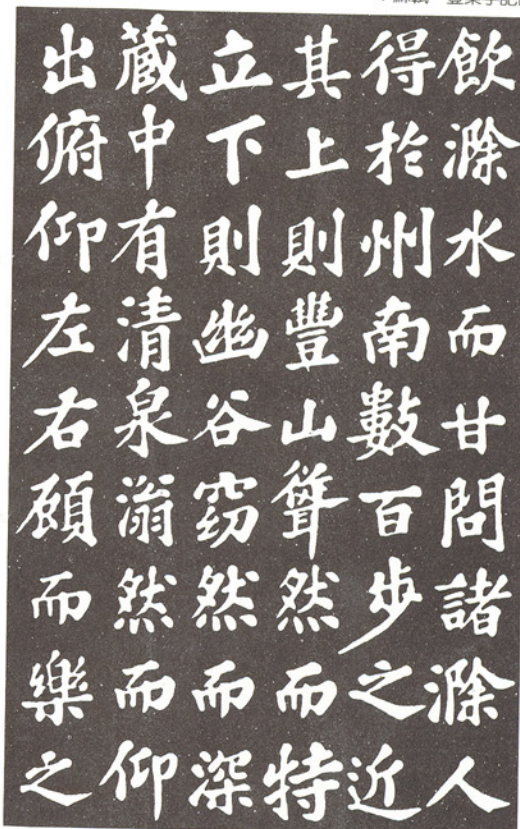 飲滁水而甘問諸滁人
得於州南數百步之近
其上則豐山聳然而特
立下則幽谷窈然而深
藏中有清泉滃然而仰
出俯仰左右顧而樂之